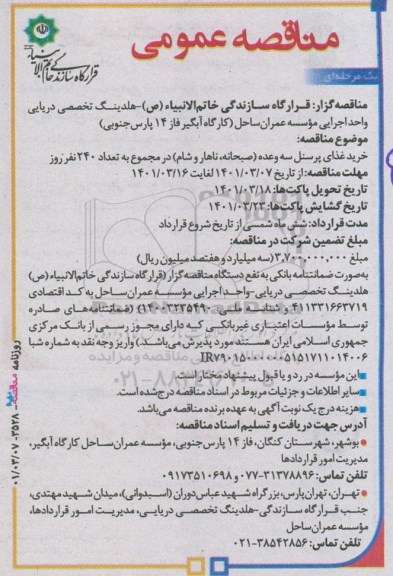 مناقصه عمومی
قرارگاه سازندگی خاتم الانبیاء
یک مرحله‌ای
مناقصه‌گزار: قرارگاه سازندگی خاتم‌الانبیاء (ص)-هلدینگ تخصصی دریایی
واحد اجرایی مؤسسه عمران ساحل (کارگاه آبگیر فاز ۱۴ پارس جنوبی)
موضوع مناقصه:
خرید غذای پرسنل سه وعده (صبحانه، ناهار و شام) در مجموع به تعداد ۲۴۰ نفر روز
مهلت مناقصه: از تاریخ ۱۴۰۱/۰۳/۰۷ لغایت ۱۴۰۱/۰۳/۱۶
تاریخ تحویل پاکت‌ها: ۱۴۰۱/۰۳/۱۸
تاریخ گشایش پاکت‌ها: ۱۴۰۱/۰۳/۲۳
مدت قرارداد: شش ماه شمسی از تاریخ شروع قرارداد
مبلغ تضمین شرکت در مناقصه:
مبلغ ۳,۷۰۰,۰۰۰,۰۰۰ (سه میلیارد و هفتصد میلیون ریال)
به‌صورت ضمانتنامه بانکی به نفع دستگاه مناقصه گزار (قرارگاه سازندگی خاتم‌الانبیاء (ص)
هلدینگ تخصصی دریایی-واحد اجرایی مؤسسه عمران ساحل به کد اقتصادی
۴۱۱۳۳۱۶۶۳۷۱۹ و شناسه ملی ۱۴۰۰۳۲۳۵۴۹۰) (ضمانتنامه‌های صادره
توسط مؤسسات اعتباری غیربانکی که دارای مجوز رسمی از بانک مرکزی
جمهوری اسلامی ایران هستند مورد پذیرش می‌باشد.) واریز وجه نقد به شماره شبا
این مؤسسه در رد و یا قبول پیشنهاد مختار است.
سایر اطلاعات و جزئیات مربوط در اسناد مناقصه درج شده است.
هزینه درج یک نوبت آگهی به عهده برنده مناقصه می‌باشد.
آدرس جهت دریافت و تسلیم اسناد مناقصه:
• بوشهر، شهرستان کنگان، فاز ۱۴ پارس جنوبی، مؤسسه عمران ساحل کارگاه آبگیر،
مدیریت امور قراردادها
تلفن تماس: ۳۱۳۷۸۸۹۶-۰۷۷ و ۰۹۱۷۳۵۱۰۶۹۸
• تهران، تهران‌پارس، بزرگراه شهید عباس دوران (اسبدوانی)، میدان شهید مهتدی،
جنب قرارگاه سازندگی-هلدینگ تخصصی دریایی، مدیریت امور قراردادها،
مؤسسه عمران ساحل
تلفن تماس: ۳۸۵۴۲۸۵۶-۰۲۱
روزنامه مناقصه ۲۵۲۸ - ۰۱/۰۳/۰۷